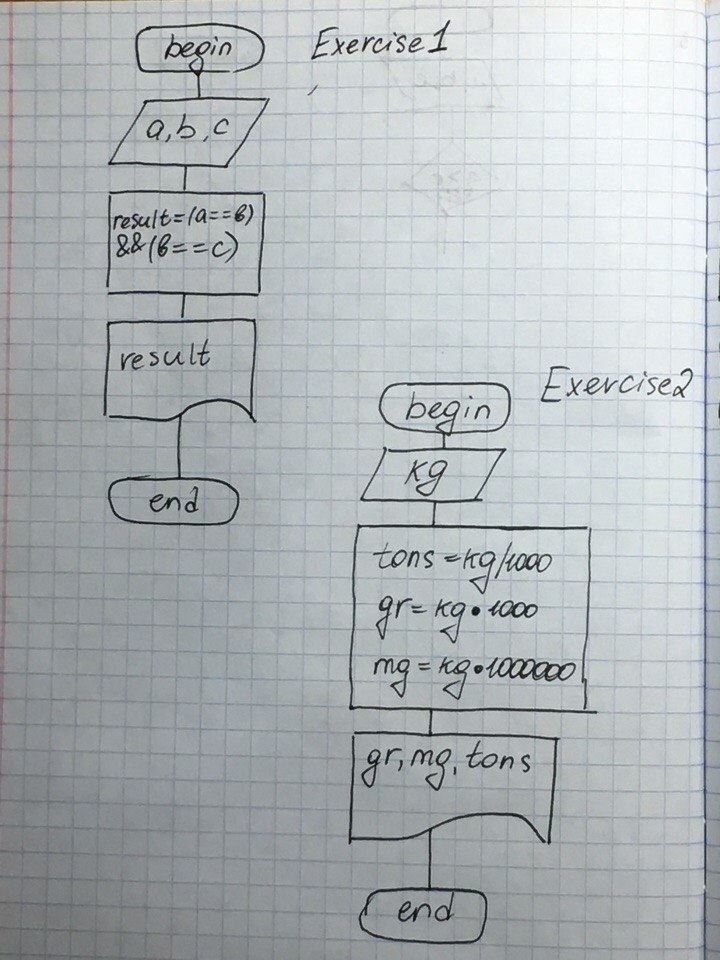 Exercise 1
begin
a, b, c
result=(a==b)
&&(b==c)
result
end
Exercise2
begin
kg
tons=kg/1000
gr=kg•1000
mg=kg•1000000
gr, mg, tons
end